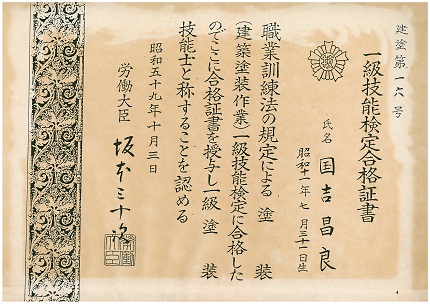 建塗第一六号
一級技能検定合格証書
氏名 国吉昌良
昭和十一年七月三十一日生
職業訓練法の規定による 塗装
(建築塗装作業)一級技能検定に合格した
のでここに合格証書を授与し一級 塗装
技能士と称することを認める
昭和五十九年十月三日
労働大臣 坂本三十次